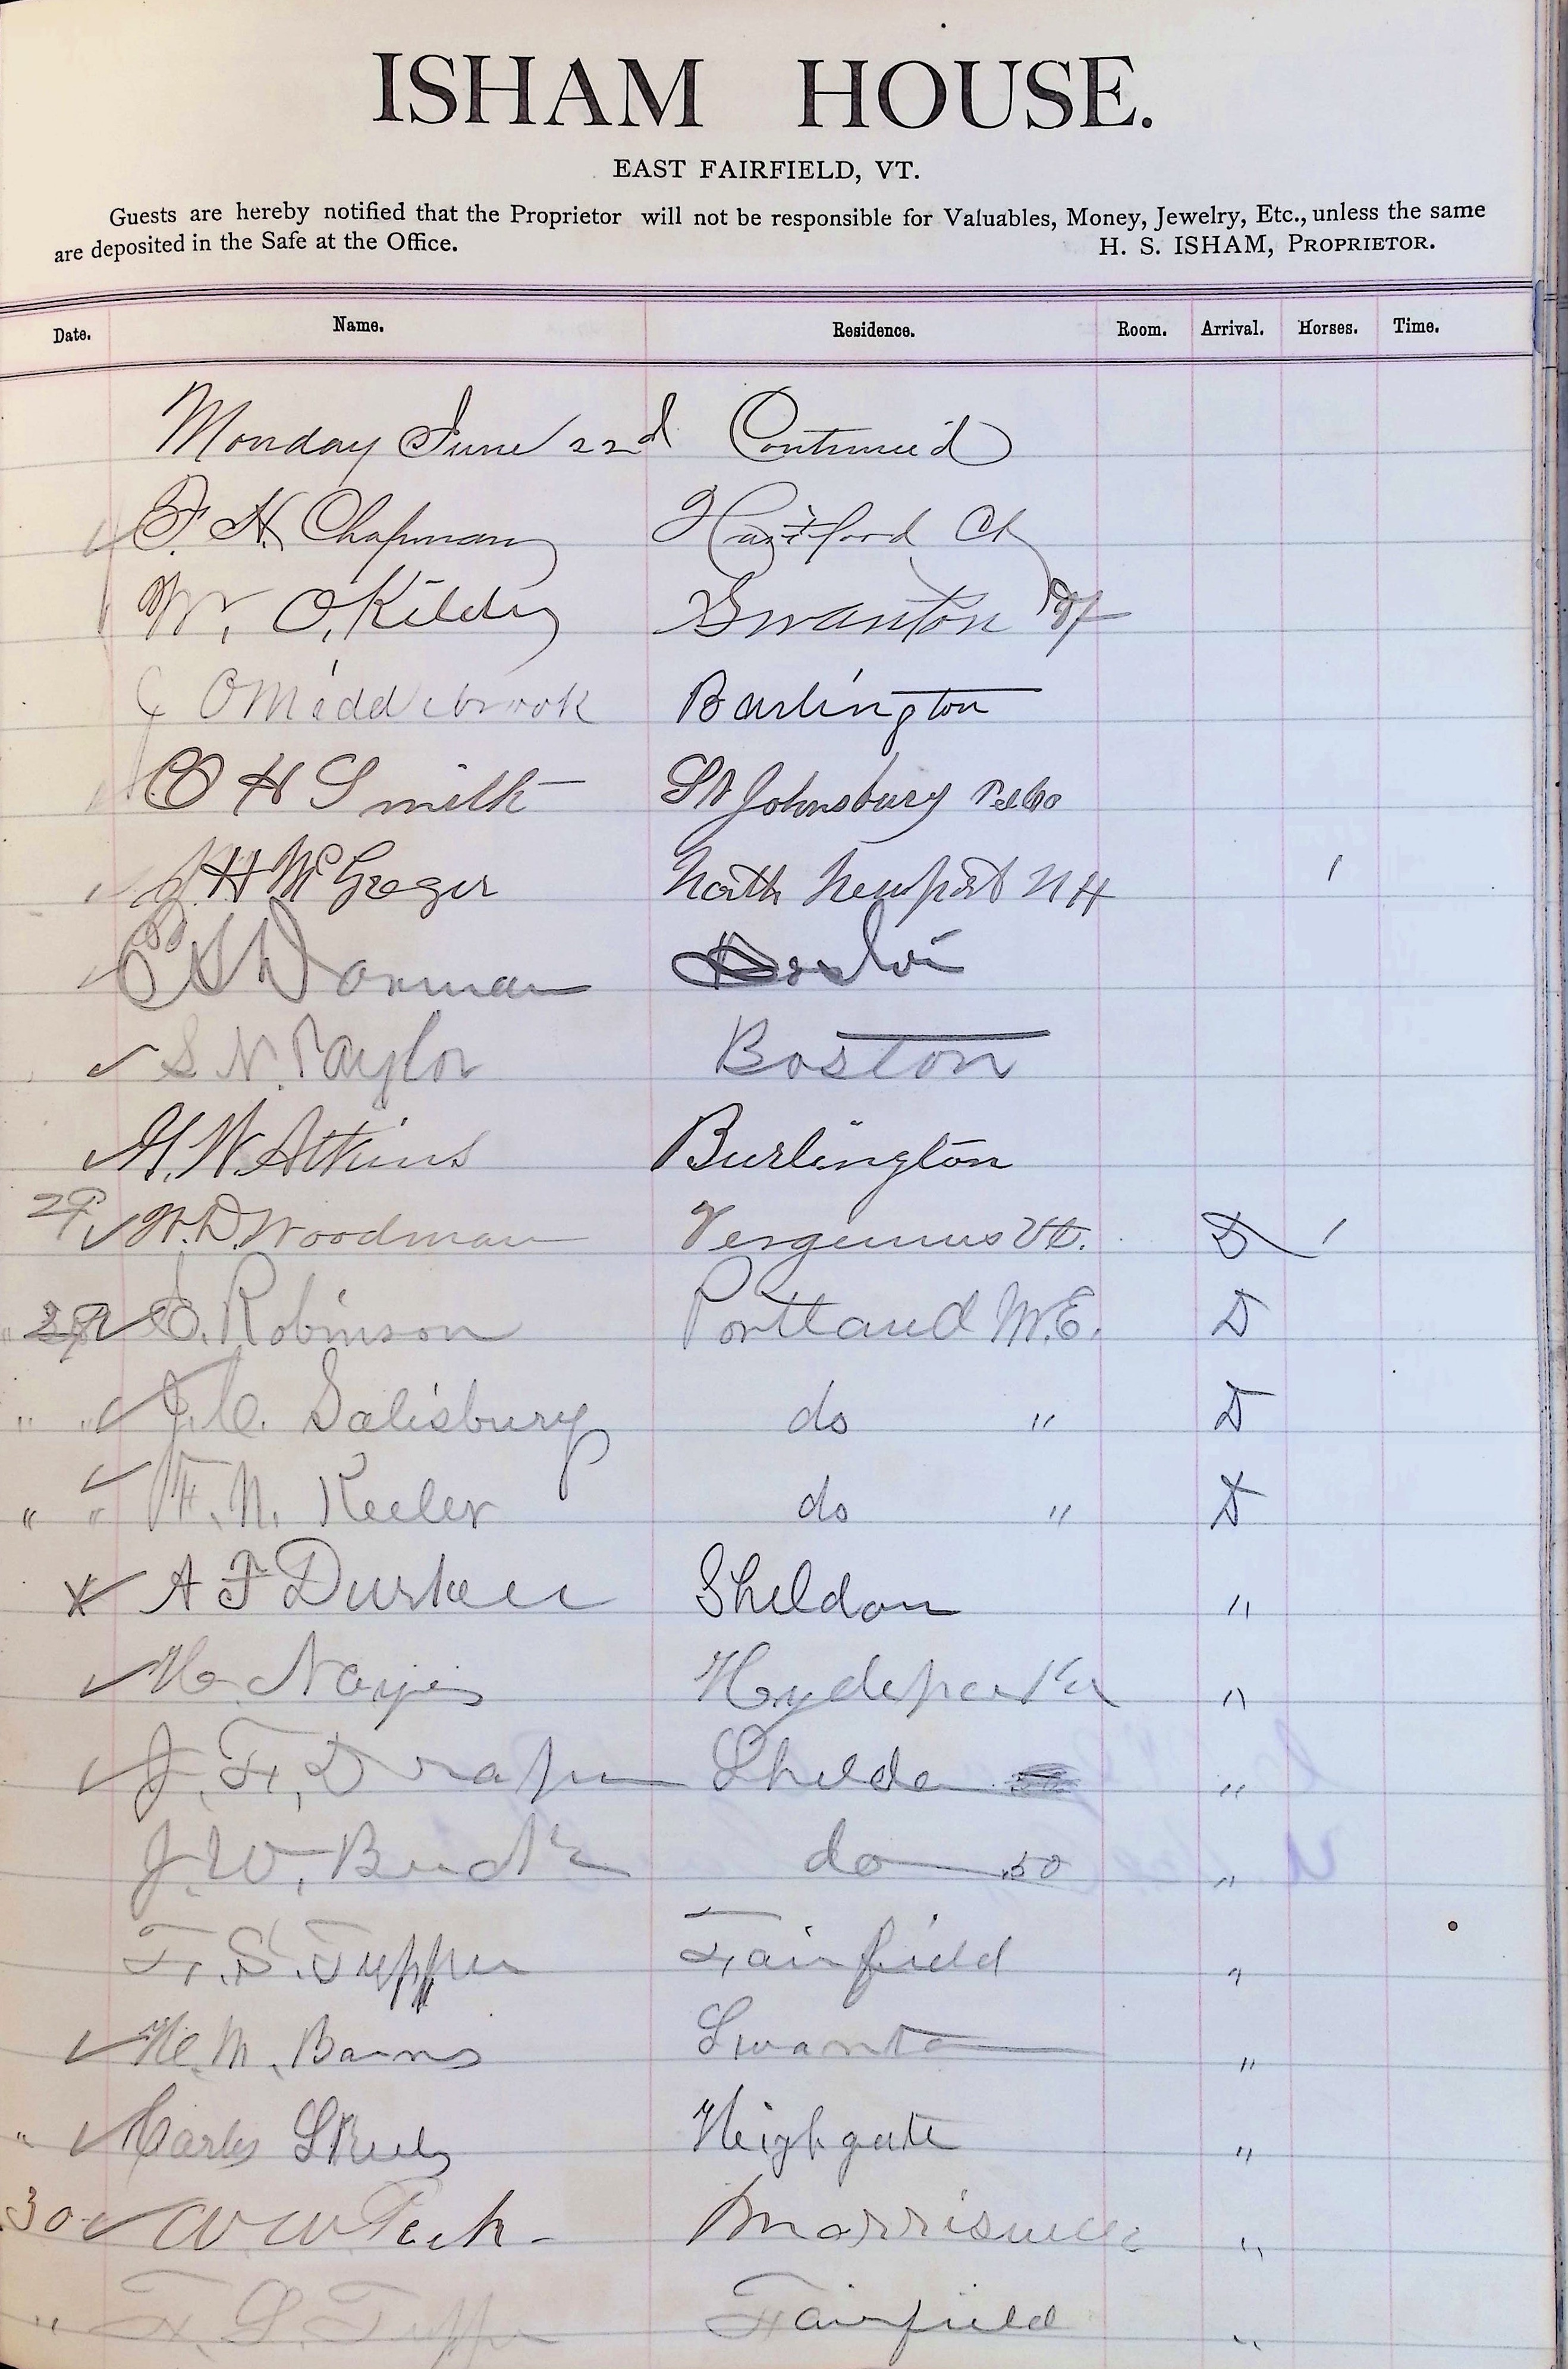 ISHAM HOUSE.
EAST FAIRFIELD, VT.
Guests are hereby notified that the Proprietor will not be responsible for Valuables, Money, Jewelry, Etc., unless the same
are deposited in the Safe at the Office. H. S. ISHAM, PROPRIETOR.
Date. Name. Residence. Room. Arrival. Horses. Time.
Monday June 22d Continued
F. H. Chapman Hartford Ct
W. O. Kilday Swanton Vt
C O Middlebrook Burlington
C H Smith St Johnsbury
J H McGreger North Newport N H 1
C S Dorman Boston
S. N. Taylor Boston
H. W. Atkins Burlington
W. D. Woodman Vergennes Vt. D 1
Robinson Portland M.E. D
" " J. C. Salisbury do " D
" " F. N. Keeler do " D
A F Durkee Sheldon "
Noyes Hydepark "
J. F. Draper Sheldon "
J. W. do 50 "
F. S. Tupper Fairfield "
H. M. Barns Swanton "
" Carlos Skeels Heighgate "
30 W W Peck Morrisville "
" F. S. Tupper Fairfield "